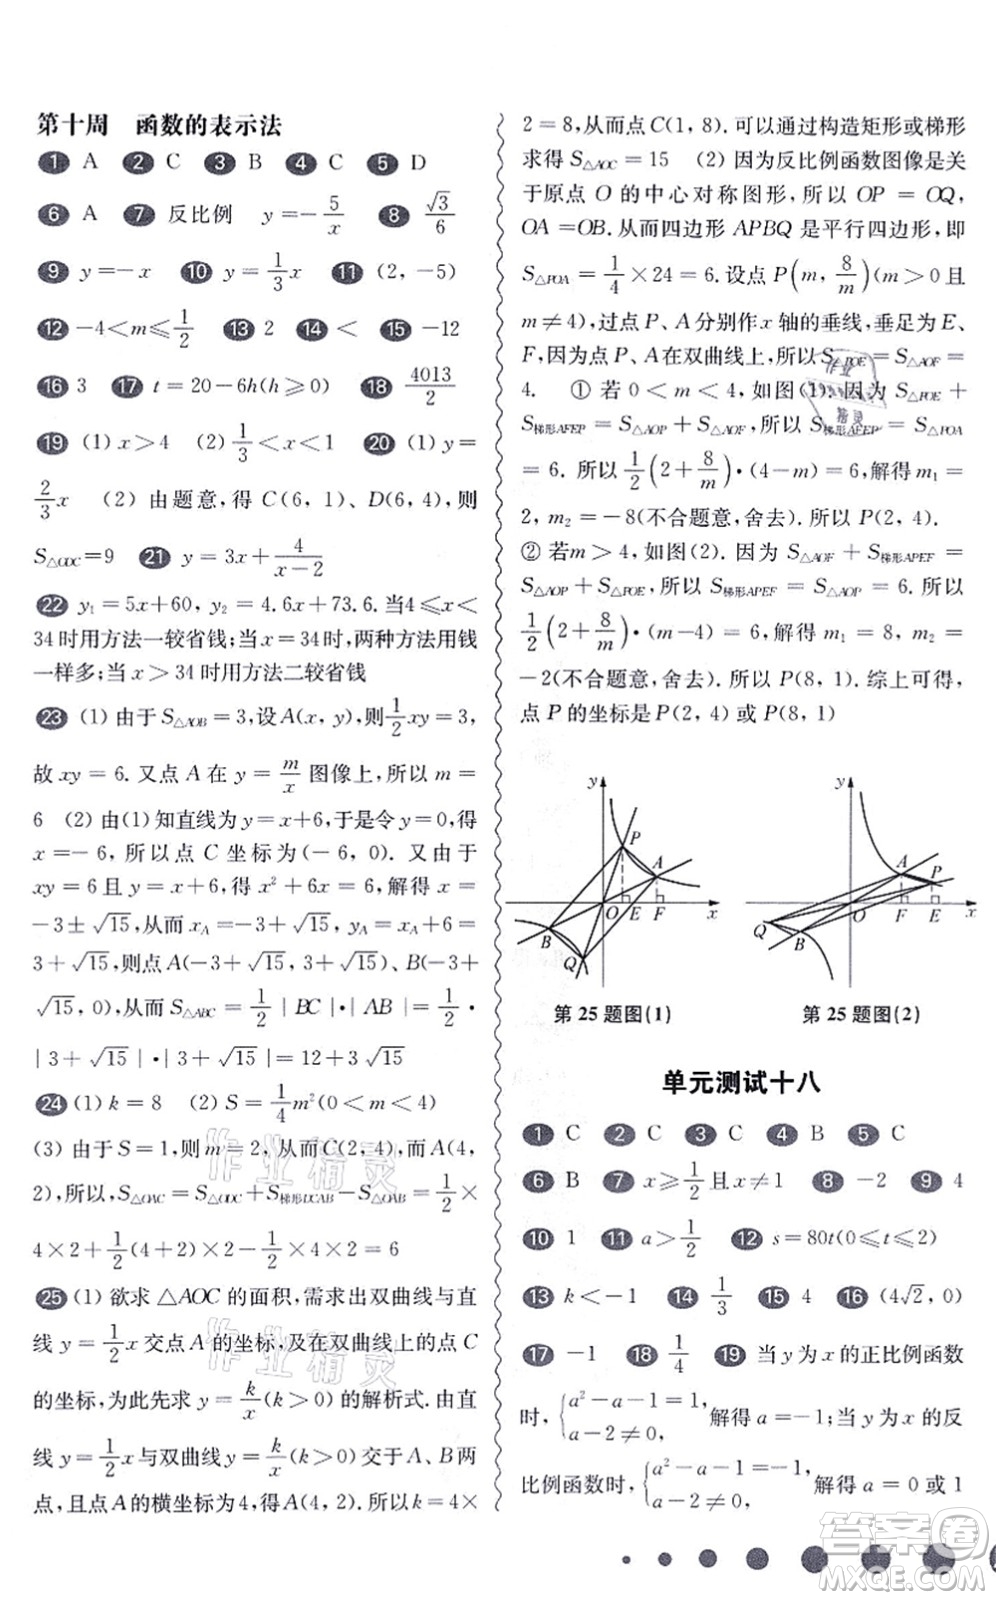 第十周　函数的表示法
1 A　2 C　3 B　4 C　5 D
6 A　7 反比例　y=-5/x　8 √3/6
9 y=-x　10 y=1/3x　11 (2, -5)
12 -4<m≤1/2　13 2　14 <　15 -12
16 3　17 t=20-6h(h≥0)　18 4013/2
19 (1) x>4　(2) 1/3<x<1　20 (1) y=
2/3x　(2) 由题意,得 C(6, 1)、D(6, 4),则
S△ODC=9　21 y=3x+4/(x-2)
22 y₁=5x+60, y₂=4.6x+73.6. 当4≤x<
34时用方法一较省钱;当x=34时,两种方法用钱
一样多;当x>34时用方法二较省钱
23 (1) 由于S△AOB=3,设A(x, y),则1/2xy=3,
故xy=6. 又点A在y=m/x图像上,所以m=
6　(2) 由(1)知直线为y=x+6,于是令y=0,得
x=-6,所以点C坐标为(-6, 0). 又由于
xy=6且x+6=y,得x²+6x=6,解得x=
-3±√15,从而x_A=-3+√15, y_A=x_A+6=
3+√15,则点A(-3+√15, 3+√15)、B(-3-
√15, 0),从而S△ABC=1/2|BC|·|AC|=1/2·
|3+√15|·|3+√15|=12+3√15
24 (1) k=8　(2) S=1/4m²(0<m<4)
(3) 由于S=1,则m=2,从而C(2, 4),而A(4,
2),所以,S△OAC=S△ODC+S梯形DCAB-S△OAB=1/2×
4×2+1/2(4+2)×2-1/2×4×2=6
25 (1) 欲求△AOC的面积,需求出双曲线与直
线y=1/2x交点A的坐标,及在双曲线上的点C
的坐标,为此先求y=k/x(k>0)的解析式. 由直
线y=1/2x与双曲线y=k/x(k>0)交于A、B两
点,且点A的横坐标为4,得A(4, 2). 所以k=4×
2=8,从而点C(1, 8). 可以通过构造矩形或梯形
求得S△AOC=15　(2) 因为反比例函数图像是关
于原点O的中心对称图形,所以OP=OQ,
OA=OB. 从而四边形APBQ是平行四边形,即
S△POA=1/4×24=6. 设点P(m, 8/m)(m>0且
m≠4),过点P、A分别作x轴的垂线,垂足为E、
F,因为点P、A在双曲线上,所以S△POE=S△AOF=
4.　① 若0<m<4,如图(1). 因为S△POE+
S梯形AFEP=S△AOP+S△AOF,所以S梯形AFEP=S△POA
=6. 所以1/2(2+8/m)·(4-m)=6,解得m₁=
2, m₂=-8(不合题意,舍去). 所以P(2, 4).
② 若m>4,如图(2). 因为S△AOF+S梯形APEF=
S△AOP+S△POE,所以S梯形APEF=S△AOP=6. 所以
1/2(2+8/m)·(m-4)=6,解得m₁=8, m₂=
-2(不合题意,舍去). 所以P(8, 1). 综上可得,
点P的坐标是P(2, 4)或P(8, 1)
y P A O E F x B Q
y A P O F E x Q B
第25题图(1)　第25题图(2)
单元测试十八
1 C　2 C　3 C　4 B　5 C
6 B　7 x≥1/2且x≠1　8 -2　9 4
10 1　11 a>1/2　12 s=80t(0≤t≤2)
13 k<-1　14 1/3　15 4　16 (4√2, 0)
17 -1　18 1/4　19 当y为x的正比例函数
时,{a²-a-1=1, a-2≠0, 解得a=-1;当y为x的反
比例函数时,{a²-a-1=-1, a-2≠0, 解得a=0或1
作业精灵
作业精灵
作业精灵
答案圈
MXQE.COM